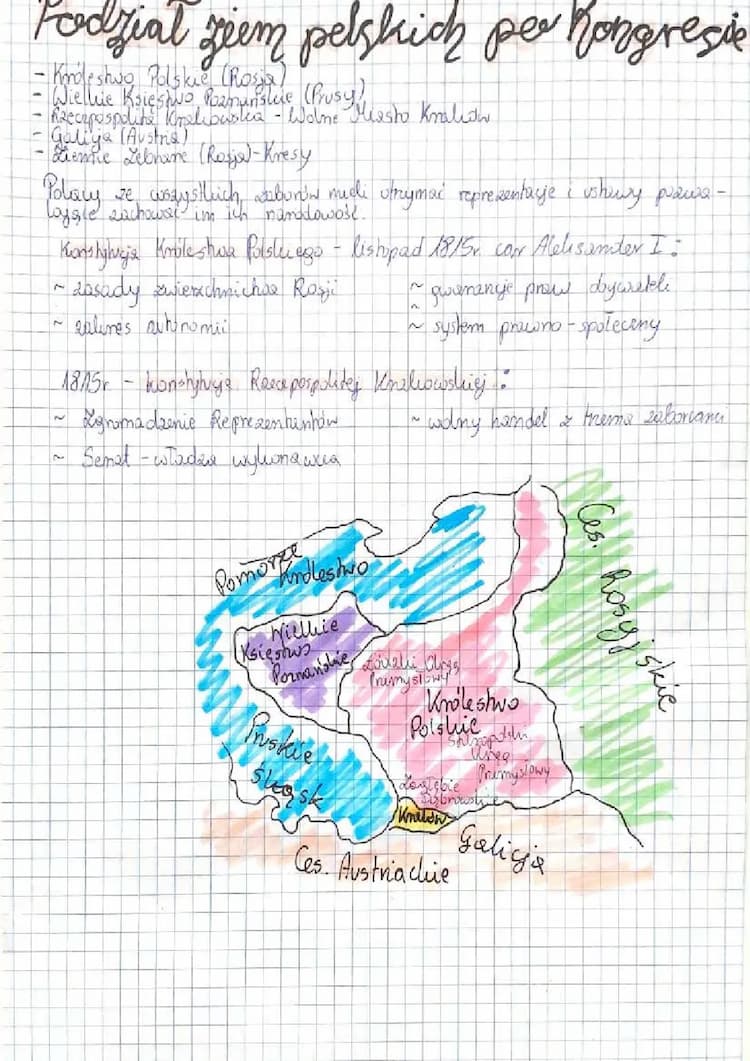 Podział ziem polskich po Kongresie
- Królestwo Polskie (Rosja)
- Wielkie Księstwo Poznańskie (Prusy)
- Rzeczpospolita Krakowska - Wolne Miasto Kraków
- Galicja (Austria)
- Ziemie Zabrane (Rosja)-Kresy
Polacy ze wszystkich zaborów mieli otrzymać reprezentacje i ustawy pozwa-
lające zachować im ich narodowość.
Konstytucja Królestwa Polskiego - listopad 1815r. car Aleksander I:
~ zasady zwierzchnictwa Rosji
~ gwarancje praw obywateli
~ zakres autonomii
~ system prawno-społeczny
1815r - konstytucja Rzeczpospolitej Krakowskiej:
~ Zgromadzenie Reprezentantów
~ wolny handel z trzema zaborcami
~ Senat - władza wykonawcza
Pomorze
Królestwo
Ces. Rosyjskie
Wielkie
Księstwo
Poznańskie
Łódzki Okręg
Przemysłowy
Królestwo
Polskie
Staropolski
Okręg
Przemysłowy
Pruskie
Śląsk
Zagłębie
Dąbrowskie
Kraków
Galicja
Ces. Austriackie